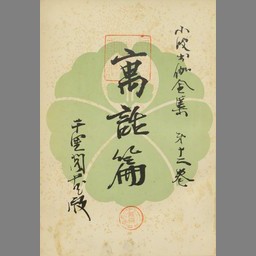 小波お伽全集 第十二巻
寓話篇
千里閣出版